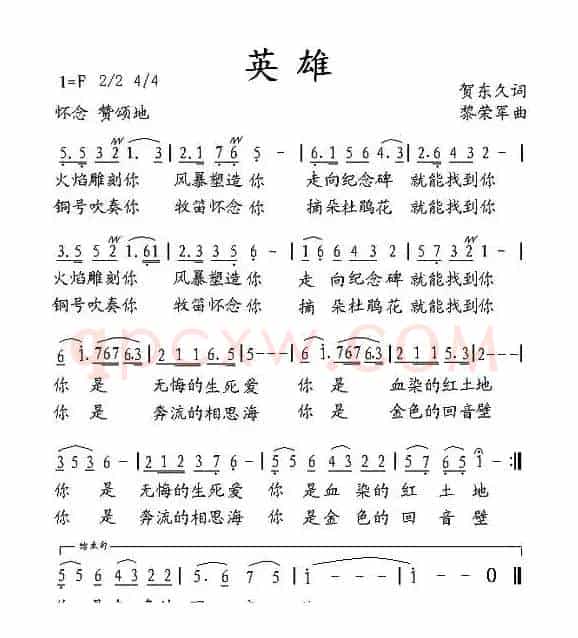 英 雄
1=F 2/2 4/4
贺东久词
怀念 赞颂地
黎荣军曲
5.5 3 2 1. 3 | 2.1 7 6 5 - | 6.1 5 6 4.3 | 2.6 4 3 2 - |
火焰雕刻你 风暴塑造你 走向纪念碑 就能找到你
铜号吹奏你 牧笛怀念你 摘朵杜鹃花 就能找到你
3.5 5 2 1.61 | 2.3 5 7 6 - | 1 6 6 4 3 2 | 5 7 3 2 1 - |
火焰雕刻你 风暴塑造你 走 向纪念碑 就能找到你
铜号吹奏你 牧笛怀念你 摘 朵杜鹃花 就能找到你
qpcxw.COM
6 1.767 6.3 | 2 1 1 6.5 | 5 - - - | 6 1.767 6.3 | 2 1 1 2 5.3 | 2 - - - |
你 是 无悔的生死爱 你 是 血染的红土地
你 是 奔流的相思海 你 是 金色的回音壁
3 5 3 6 - | 2 1 2 2 3 7. 6 - | 5 5 6 4 3 2 2 | 5 7 6 5 1 - :||
你 是 无悔的生死爱 你 是血 染的 红 土 地
你 是 奔流的相思海 你 是金 色的 回 音 壁
结束句
5 5 6 4 3 2 2 | 5. 6 7 5 | 1 - - - | 1 - - 0 ||